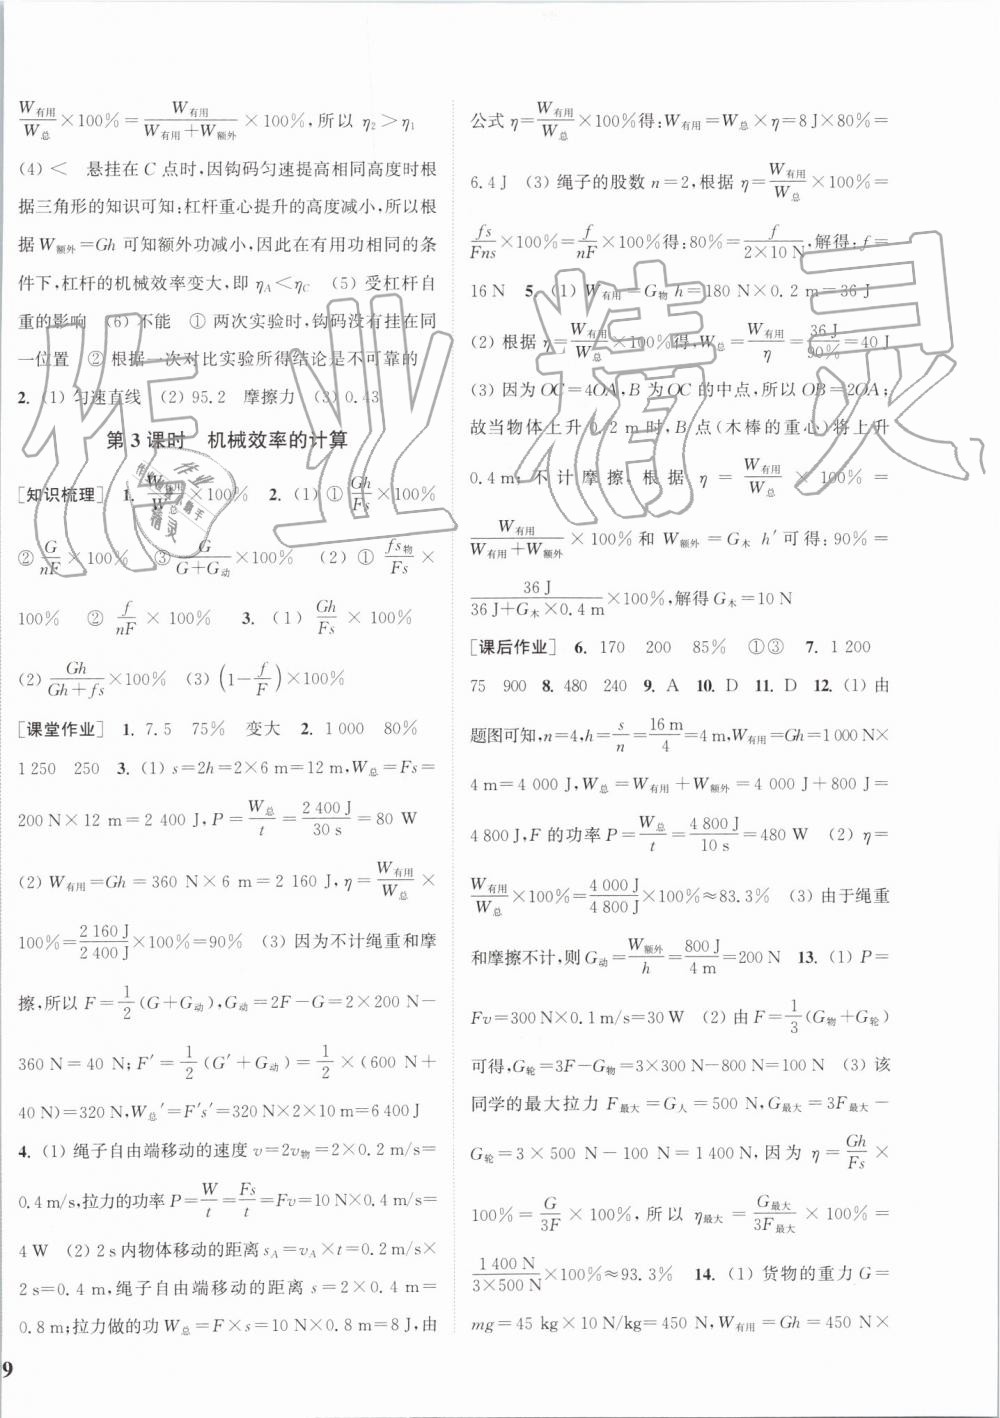 W有用/W总×100%=W有用/(W有用+W额外)×100%,所以 η₂>η₁
(4)< 悬挂在 C 点时,因钩码匀速提高相同高度时根
据三角形的知识可知:杠杆重心提升的高度减小,所以根
据 W额外=Gh 可知额外功减小,因此在有用功相同的条
件下,杠杆的机械效率变大,即 ηA<ηC (5) 受杠杆自
重的影响 (6) 不能 ① 两次实验时,钩码没有挂在同
一位置 ② 根据一次对比实验所得结论是不可靠的
2. (1) 匀速直线 (2) 95.2 摩擦力 (3) 0.43
第 3 课时 机械效率的计算
[知识梳理] 1. W有用/W总×100% 2. (1) ① Gh/Fs
② G/nF×100% ③ G/(G+G动)×100% (2) ① fs物/Fs×
100% ② f/nF×100% 3. (1) Gh/Fs×100%
(2) Gh/(Gh+fs)×100% (3) (1-f/F)×100%
[课堂作业] 1. 7.5 75% 变大 2. 1 000 80%
1 250 250 3. (1) s=2h=2×6 m=12 m,W总=Fs=
200 N×12 m=2 400 J,P=W总/t=2 400 J/30 s=80 W
(2) W有用=Gh=360 N×6 m=2 160 J,η=W有用/W总×
100%=2 160 J/2 400 J×100%=90% (3) 因为不计绳重和摩
擦,所以 F=1/2(G+G动),G动=2F-G=2×200 N-
360 N=40 N;F′=1/2(G′+G动)=1/2×(600 N+
40 N)=320 N,W总′=F′s′=320 N×2×10 m=6 400 J
4. (1) 绳子自由端移动的速度 v=2v物=2×0.2 m/s=
0.4 m/s,拉力的功率 P=W/t=Fs/t=Fv=10 N×0.4 m/s=
4 W (2) 2 s内物体移动的距离 sA=vA×t=0.2 m/s×
2 s=0.4 m,绳子自由端移动的距离 s=2×0.4 m=
0.8 m;拉力做的功 W总=F×s=10 N×0.8 m=8 J,由
公式 η=W有用/W总×100%得:W有用=W总×η=8 J×80%=
6.4 J (3) 绳子的股数 n=2,根据 η=W有用/W总×100%=
fs/Fns×100%=f/nF×100%得:80%=f/(2×10 N),解得:f=
16 N 5. (1) W有用=G物 h=180 N×0.2 m=36 J
(2) 根据 η=W有用/W总×100%得,W总=W有用/η=36 J/90%=40 J
(3) 因为 OC=4OA,B 为 OC 的中点,所以 OB=2OA;
故当物体上升 0.2 m时,B 点(木棒的重心)将上升
0.4 m; 不计摩擦,根据 η=W有用/W总×100%=
W有用/(W有用+W额外)×100%和 W额外=G木 h′可得:90%=
36 J/(36 J+G木×0.4 m)×100%,解得 G木=10 N
[课后作业] 6. 170 200 85% ①③ 7. 1 200
75 900 8. 480 240 9. A 10. D 11. D 12. (1) 由
题图可知,n=4,h=s/n=16 m/4=4 m,W有用=Gh=1 000 N×
4 m=4 000 J,W总=W有用+W额外=4 000 J+800 J=
4 800 J,F 的功率 P=W总/t=4 800 J/10 s=480 W (2) η=
W有用/W总×100%=4 000 J/4 800 J×100%≈83.3% (3) 由于绳重
和摩擦不计,则 G动=W额外/h=800 J/4 m=200 N 13. (1) P=
Fv=300 N×0.1 m/s=30 W (2) 由 F=1/3(G物+G轮)
可得,G轮=3F-G物=3×300 N-800 N=100 N (3) 该
同学的最大拉力 F最大=G人=500 N,G最大=3F最大-
G轮=3×500 N-100 N=1 400 N,因为 η=Gh/Fs×
100%=G/3F×100%,所以 η最大=G最大/3F最大×100%=
1 400 N/(3×500 N)×100%≈93.3% 14. (1) 货物的重力 G=
mg=45 kg×10 N/kg=450 N,W有用=Gh=450 N×
9
作业精灵